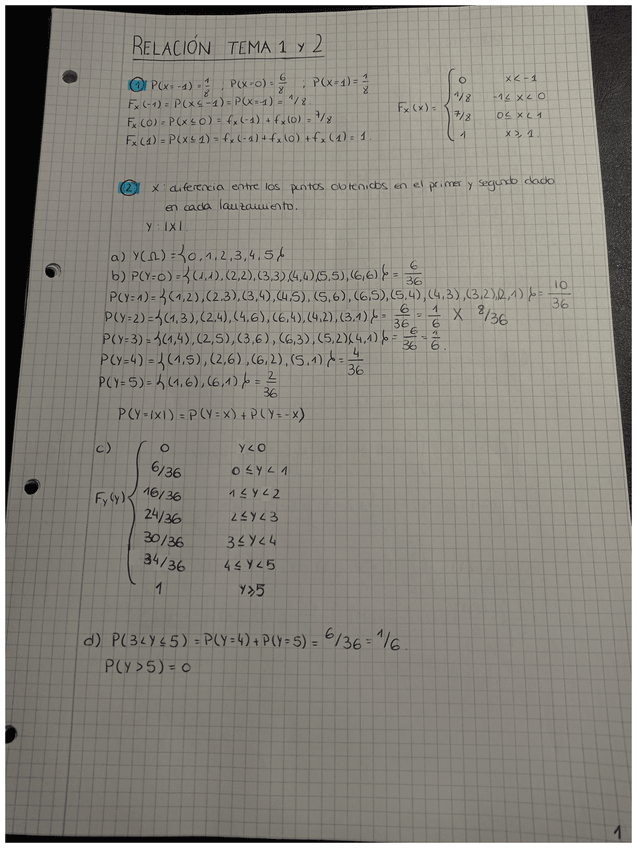 RELACIÓN TEMA 1 y 2
① P(X=-1)=1/8 ; P(X=0)=6/8 ; P(X=1)=1/8
Fx(-1)=P(X≤-1)=P(X=-1)=1/8
Fx(0)=P(X≤0)=fx(-1)+fx(0)=7/8
Fx(1)=P(X≤1)=fx(-1)+fx(0)+fx(1)=1
Fx(x)= {
0 x<-1
1/8 -1≤x<0
7/8 0≤x<1
1 x≥1
② X: diferencia entre los puntos obtenidos en el primer y segundo dado
en cada lanzamiento.
Y: |X|
a) Y(Ω)={0,1,2,3,4,5}
b) P(Y=0)={(1,1),(2,2),(3,3)(4,4)(5,5),(6,6)}=6/36
P(Y=1)={(1,2),(2,3),(3,4),(4,5),(5,6),(6,5),(5,4),(4,3),(3,2),(2,1)}=10/36
P(Y=2)={(1,3),(2,4),(4,6),(6,4),(4,2),(3,1)}=6/36=1/6 X 8/36
P(Y=3)={(1,4),(2,5),(3,6),(6,3),(5,2)(4,1)}=6/36=1/6.
P(Y=4)={(1,5),(2,6),(6,2),(5,1)}=4/36
P(Y=5)={(1,6),(6,1)}=2/36
P(Y=|X|)=P(Y=X)+P(Y=-X)
c) Fy(y) {
0 y<0
6/36 0≤y<1
16/36 1≤y<2
24/36 2≤y<3
30/36 3≤y<4
34/36 4≤y<5
1 y≥5
d) P(3<Y≤5)=P(Y=4)+P(Y=5)=6/36=1/6.
P(Y>5)=0
1